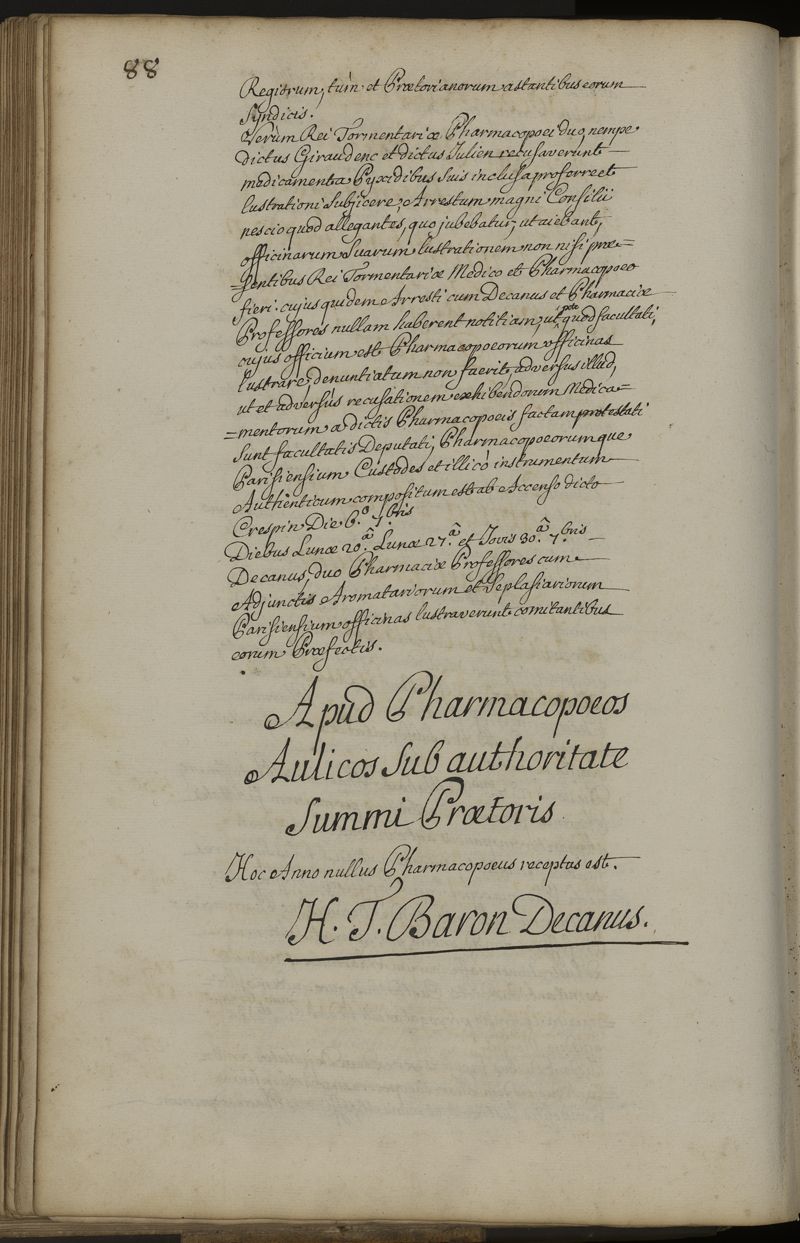 88
Regiorum, tùm et Prætorianorum astantibus eorum
Syndicis.
Verùm Rei Tormentariæ Pharmacopoei duo, nempe
dictus Giraudenc et dictus Julien recusaverunt
medicamenta Pyxidibus suis inclusa proferre et
lustrationi subjicere, Arrestum magni Consilii
nescio quod allegantes, quo jubebatur, ut aiebant,
officinarum suarum lustrationem non nisi præ=
=sentibus Rei Tormentariæ Medico et Pharmacopoeo
fieri. cujus quidem Arresti cum Decanus et Pharmaciæ
Professores nullam haberent notitiam, utpote quod facultati,
cujus officium est Pharmacopoeorum officinas
lustrare, denuntiatum non fuerit, adversus illud,
ut et adversùs recusationem exhibendorum Medica=
=mentorum a dictis Pharmacopoeis factam protestati
sunt facultatis Deputati, Pharmacopoeorumque
Parisiensium Custodes et illicò instrumentum
Authenticum compositum est ab Accenso dicto
Crespin Die 6.ª 7.bris
Diebus Lunæ 20.ª, Lunæ 27.ª et Jovis 30.ª 7.bris
Decanus, duo Pharmaciæ Professores cum
Adjunctis Aromatariorum et Seplasiariorum
Parisiensium officinas lustraverunt comitantibus
eorum Præfectis.
Apud Pharmacopoeos
Aulicos sub authoritate
Summi Prætoris
Hoc Anno nullus Pharmacopoeus receptus est.
H. T. Baron Decanus.